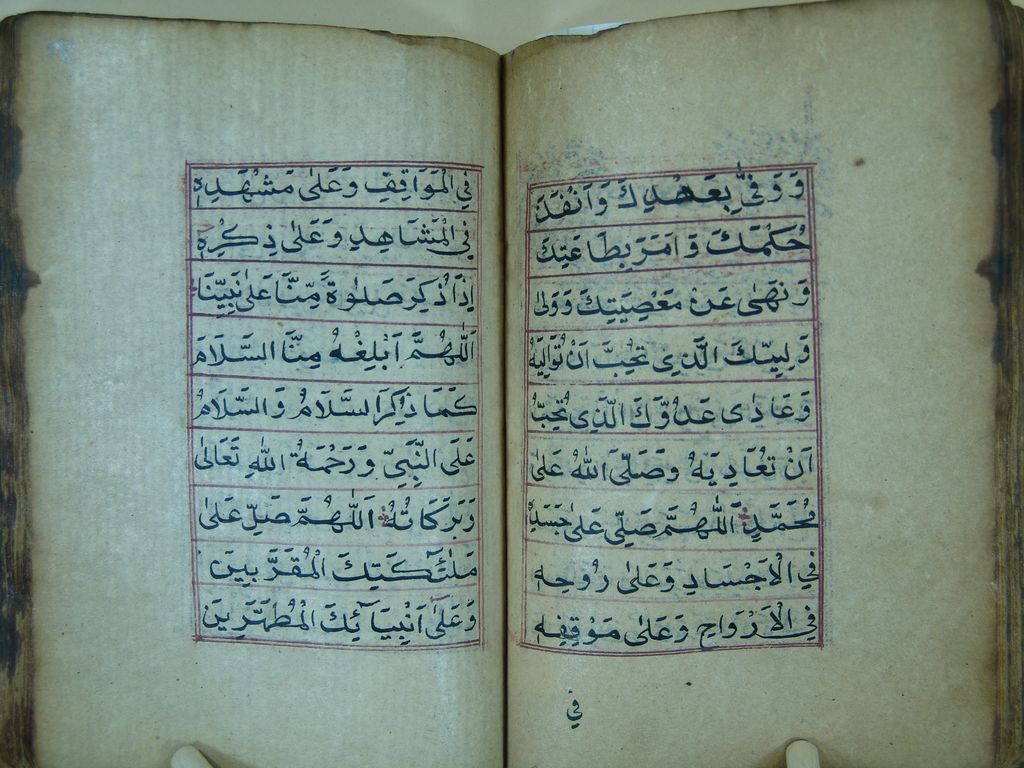 وَوَفىّٰ بِعَهْدِكَ وَاَنْفَدَ
حُكْمَكَ وَاَمَرَ بِطَاعَتِكَ
وَنَهىٰ عَنْ مَعْصِيَتِكَ وَوَلىٰ
وَلِيِّكَ الَّذِى تُحِبَّ اَنْ تُوَالِيَهُ
وَعَادٰى عَدُوَّكَ الَّذِى تُحِبُّ
اَنْ تُعَادِيَهُ وَصَلَّى اَللهُ عَلىٰ
مُحَمَّدٍ اَللّٰهُمَّ صَلِّى عَلىٰ جَسَدِهٖ
فِى الْاَجْسَادِ وَعَلىٰ رُوحِهٖ
فِى الْاَرْوَاحِ وَعَلىٰ مَوْقِفِهٖ
فِي
فِي الْمَوَاقِفِ وَعَلىٰ مَشْهَدِهٖ
فِي الْمَشَاهِدِ وَعَلىٰ ذِكْرِهٖ
اِذَا ذُكِرَ صَلٰوةً مِّنَّا عَلىٰ نَبِيِّنَا
اَللّٰهُمَّ اَبْلِغْهُ مِنَّا السَّلَامَ
كَمَا ذُكِرَ السَّلَامُ وَالسَّلَامُ
عَلَى النَّبِيِّ وَرَحْمَةُ اللهِ تَعَالىٰ
وَبَرَكَاتُهُ اَللّٰهُمَّ صَلِّ عَلىٰ
مَلٰئِكَتِكَ الْمُقَرَّبِينَ
وَعَلىٰ اَنْبِيَآئِكَ الْمُطَهَّرِينَ